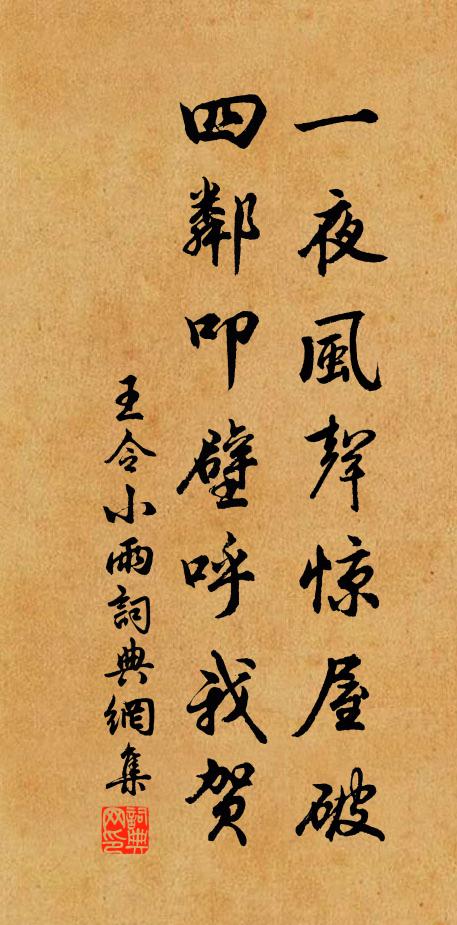 一夜風聲惊屋破
四鄰叩壁呼我贺
王令小雨詞典網集
詞典
网印